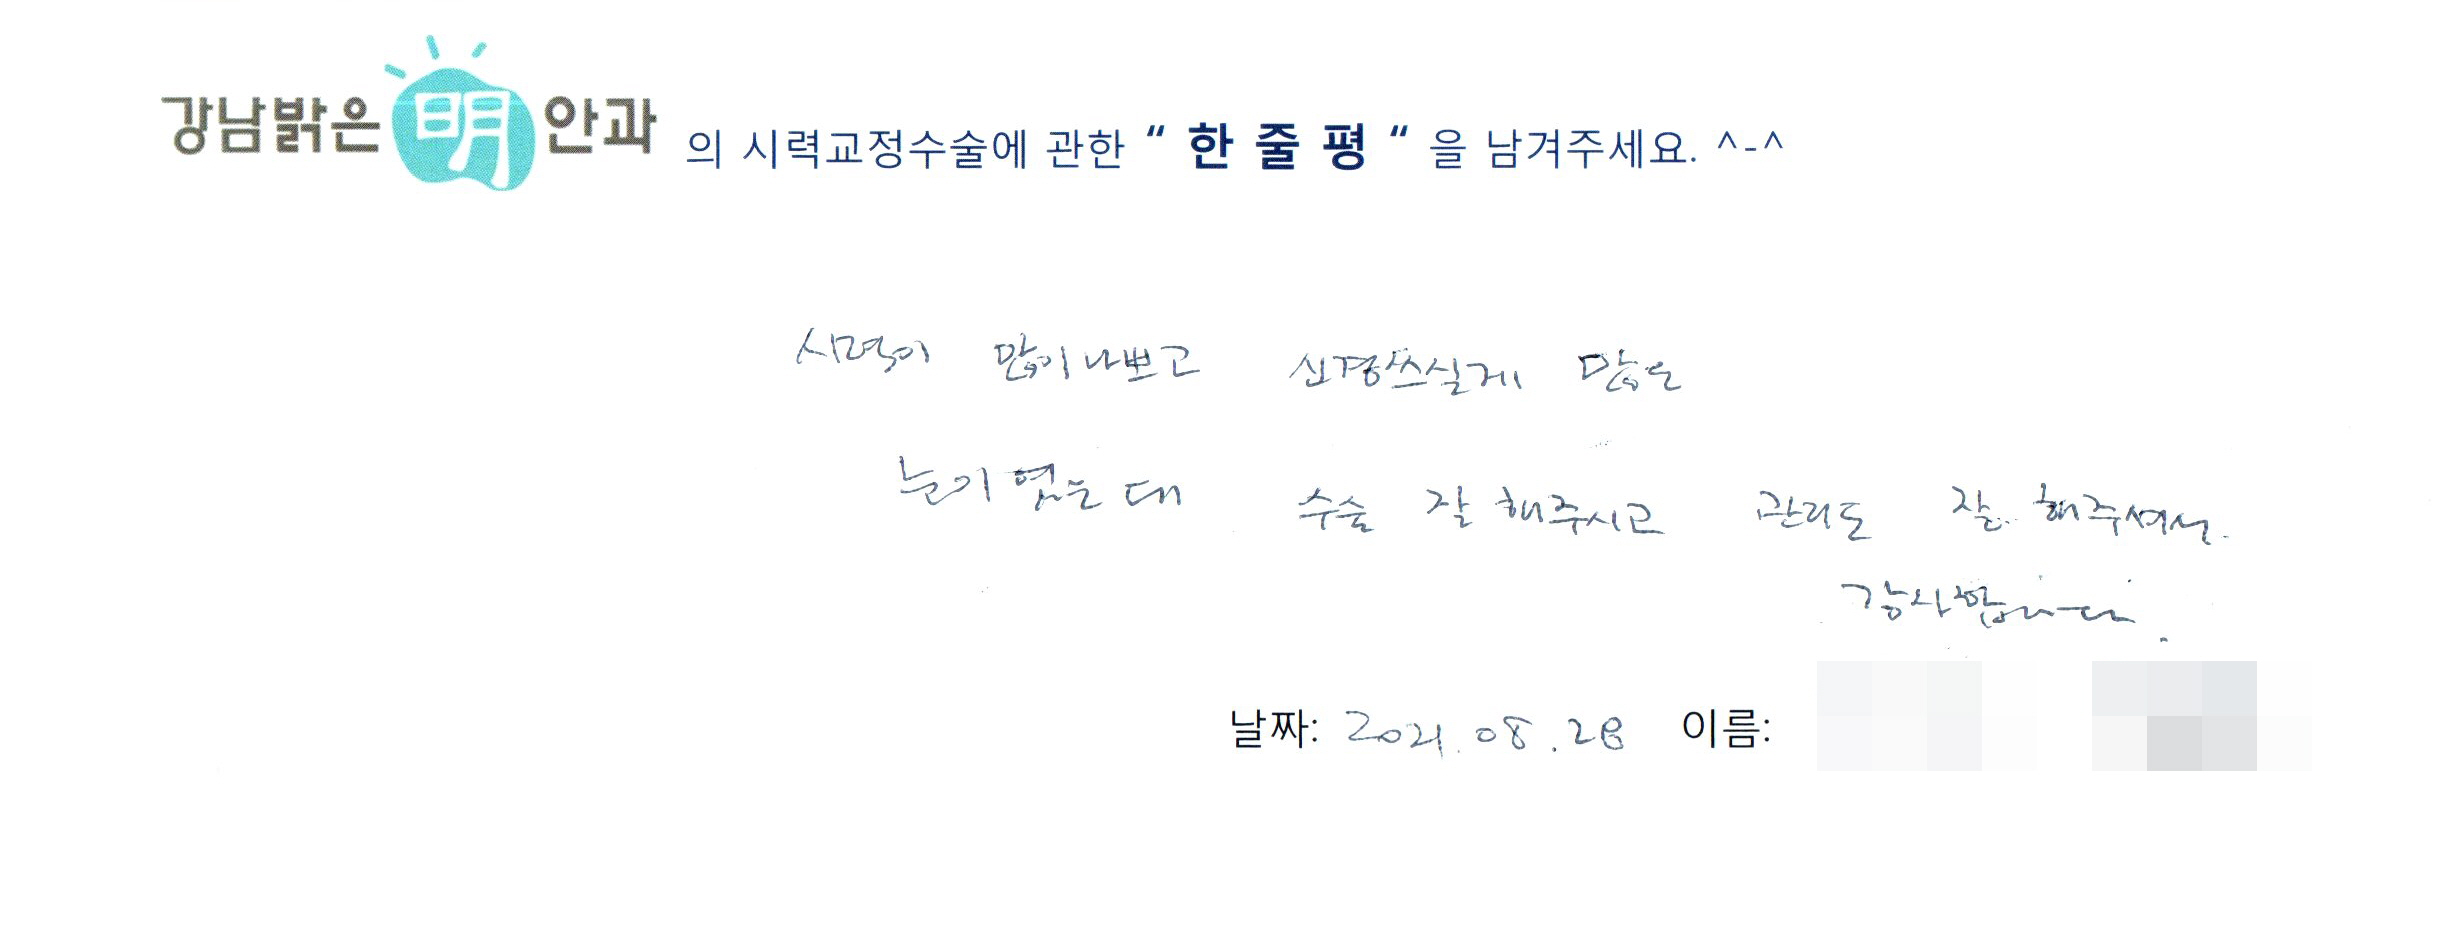 강남밝은明안과 의 시력교정수술에 관한 “ 한 줄 평 “ 을 남겨주세요. ^-^
시력이 많이나쁘고 신경쓰실게 많은
눈이였는대 수술 잘 해주시고 관리도 잘 해주셔서.
감사합니다.
날짜: 2021.08.28 이름: